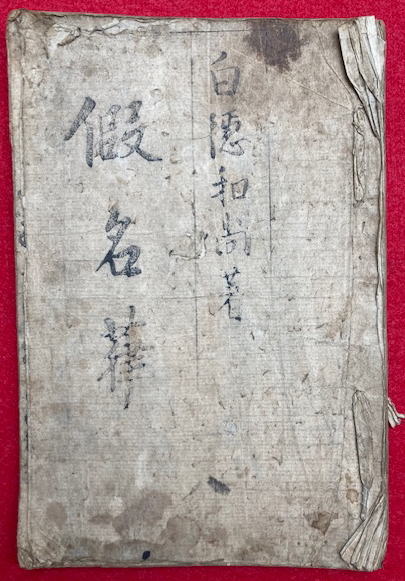 白隠和尚著
假名葎